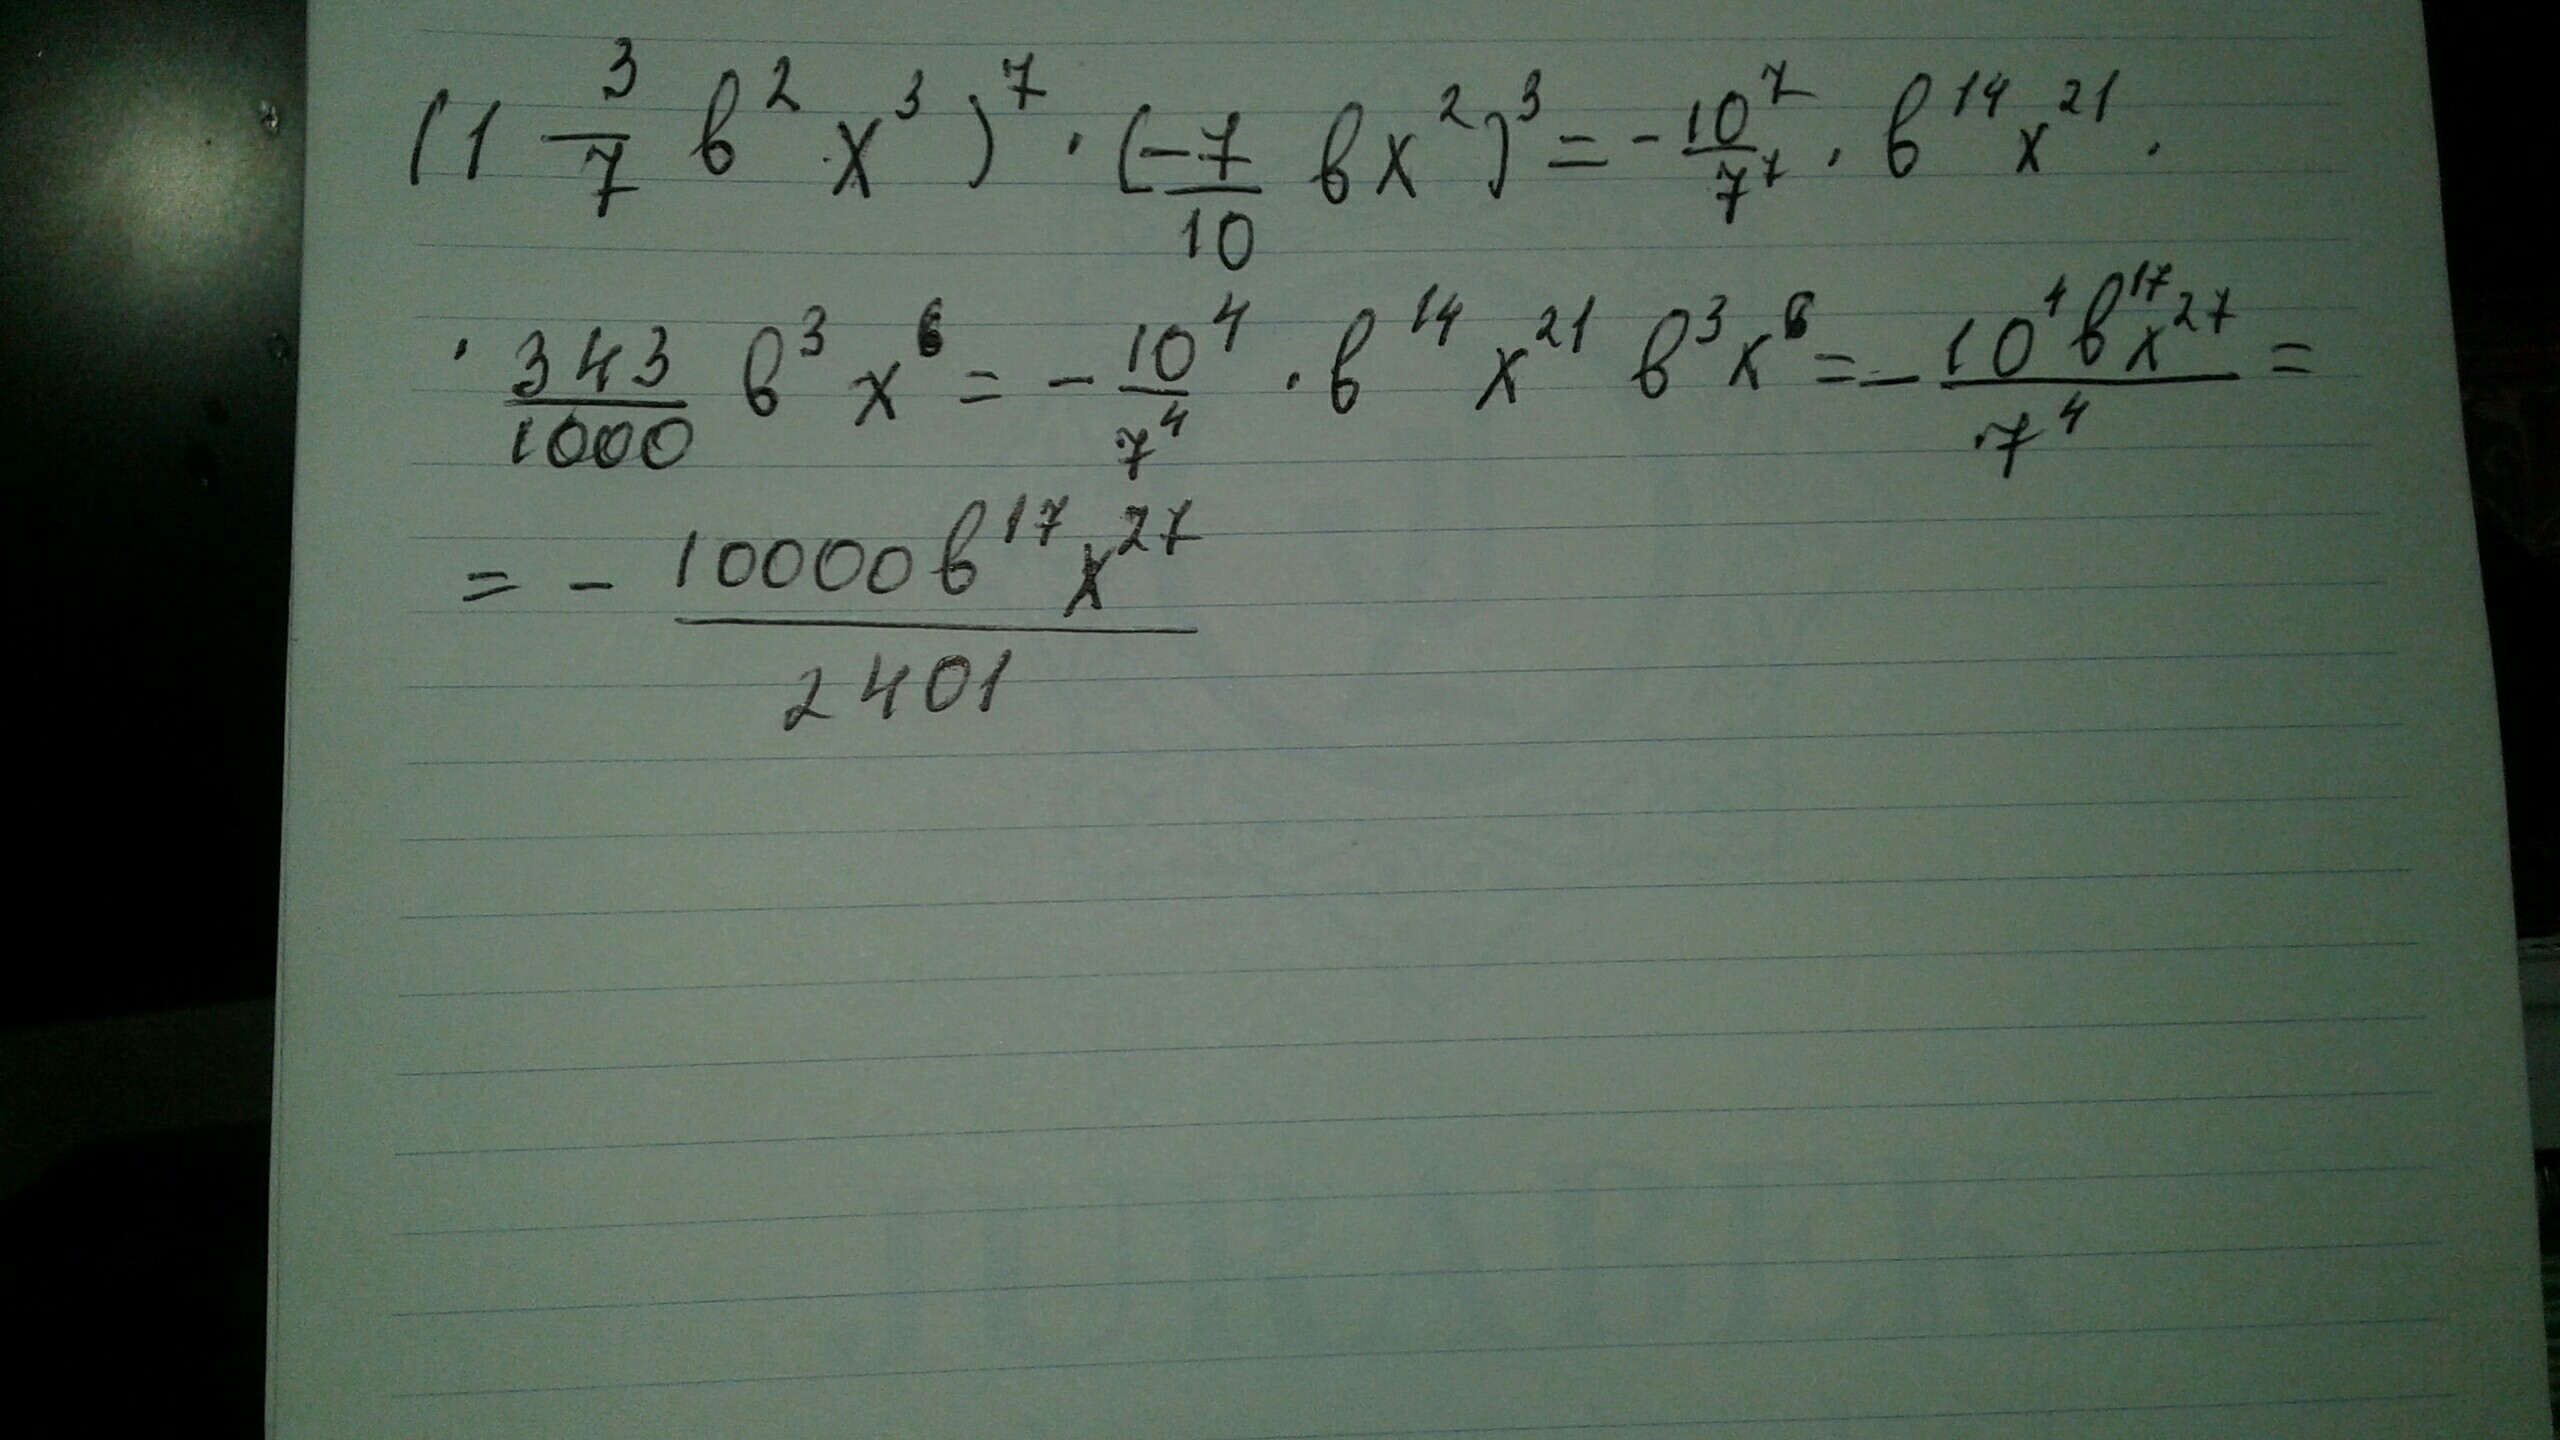 (1 3/7 в² x³)⁷ · (-7/10 вx²)³ = - 10⁷/7⁷ · в¹⁴ x²¹ ·
· 343/1000 в³ x⁶ = - 10⁴/7⁴ · в¹⁴ x²¹ в³ x⁶ = - 10⁴ в¹⁷ x²⁷/7⁴ =
= - 10000 в¹⁷ x²⁷/2401